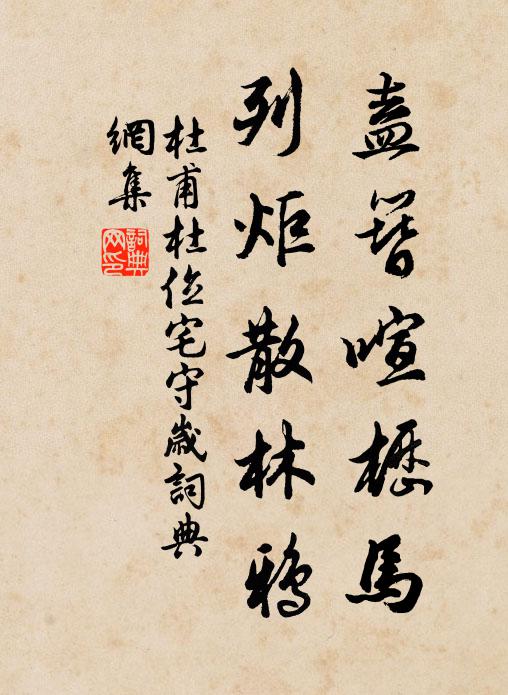 盍簪喧櫪馬
列炬散林鴉
杜甫杜位宅守歲詞典
網集
詞典網印